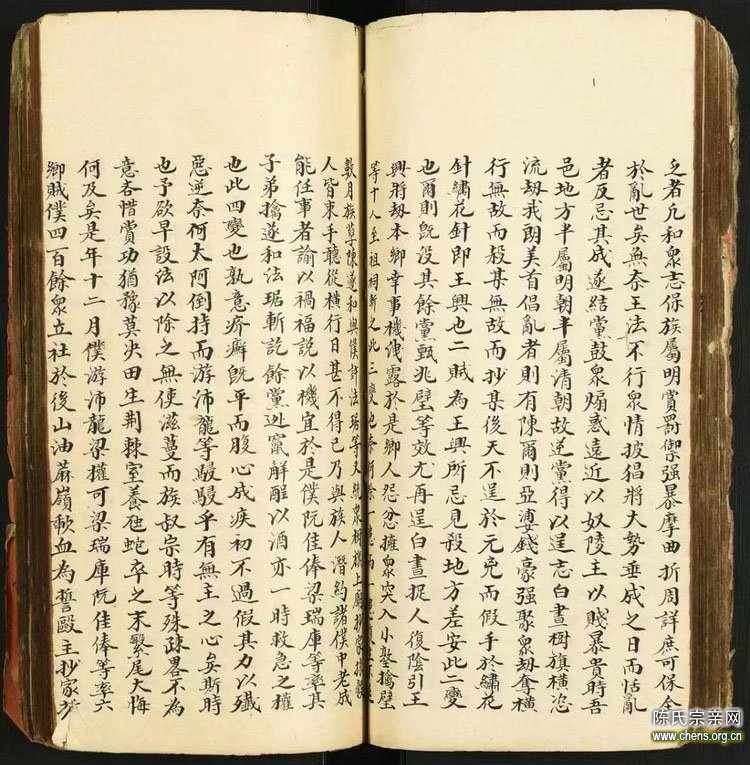 之者允和衆志保族屬明賞罰禦强暴摩曲折周詳庶可保全
於亂世矣無奈王法不行衆情披猖將大勢垂成之日而恬亂
者反忌其成遂結黨鼓衆煽惑遠近以奴陵主以賤暴貴時吾
邑地方半屬明朝半屬清朝故逆黨得以逞志白晝樹旗橫恣
流劫我朗美首倡亂者則有陳爾則亞婆錢豪强聚衆劫奪橫
行無故而殺某無故而抄某後天不逞於元免而假手於繡花
針繡花針即王興也二賊為王興所忌見殺地方差安此二變
也爾則旣没其餘黨甄兆壁等效尤再逞白晝捉人復陰引王
興將劫本鄉幸事機洩露於是鄉人怨忿擁衆突入小塾擒壁
等十人至祖祠斬之此三變也
數月族尊陳遂和與僕許法琚等又
人皆束手聽從橫行日甚不得已乃與族人潛約諸僕中老成
能任事者諭以禍福説以機宜於是僕阮佳俸梁瑞庫等率其
子弟擒遂和法琚斬訖餘黨逃竄觧醒以酒亦一時救急之權
也此四變也孰意疥癬旣平而腹心成疾初不過假其力以殲
惡逆奈何太阿倒持而游沛龍等駸駸乎有無主之心矣斯時
也予欲早設法以除之無使滋蔓而族叔宗時等殊疎畧不為
意吝惜賞功猶豫莫决田生荆棘室養虺蛇卒之末繫尾大悔
何及矣是年十二月僕游沛龍梁權可梁瑞庫阮佳俸等率六
鄉賊僕四百餘衆立社於後山油蔴嶺歃血為誓毆主抄家
陈氏宗亲网
www.chens.org.cn